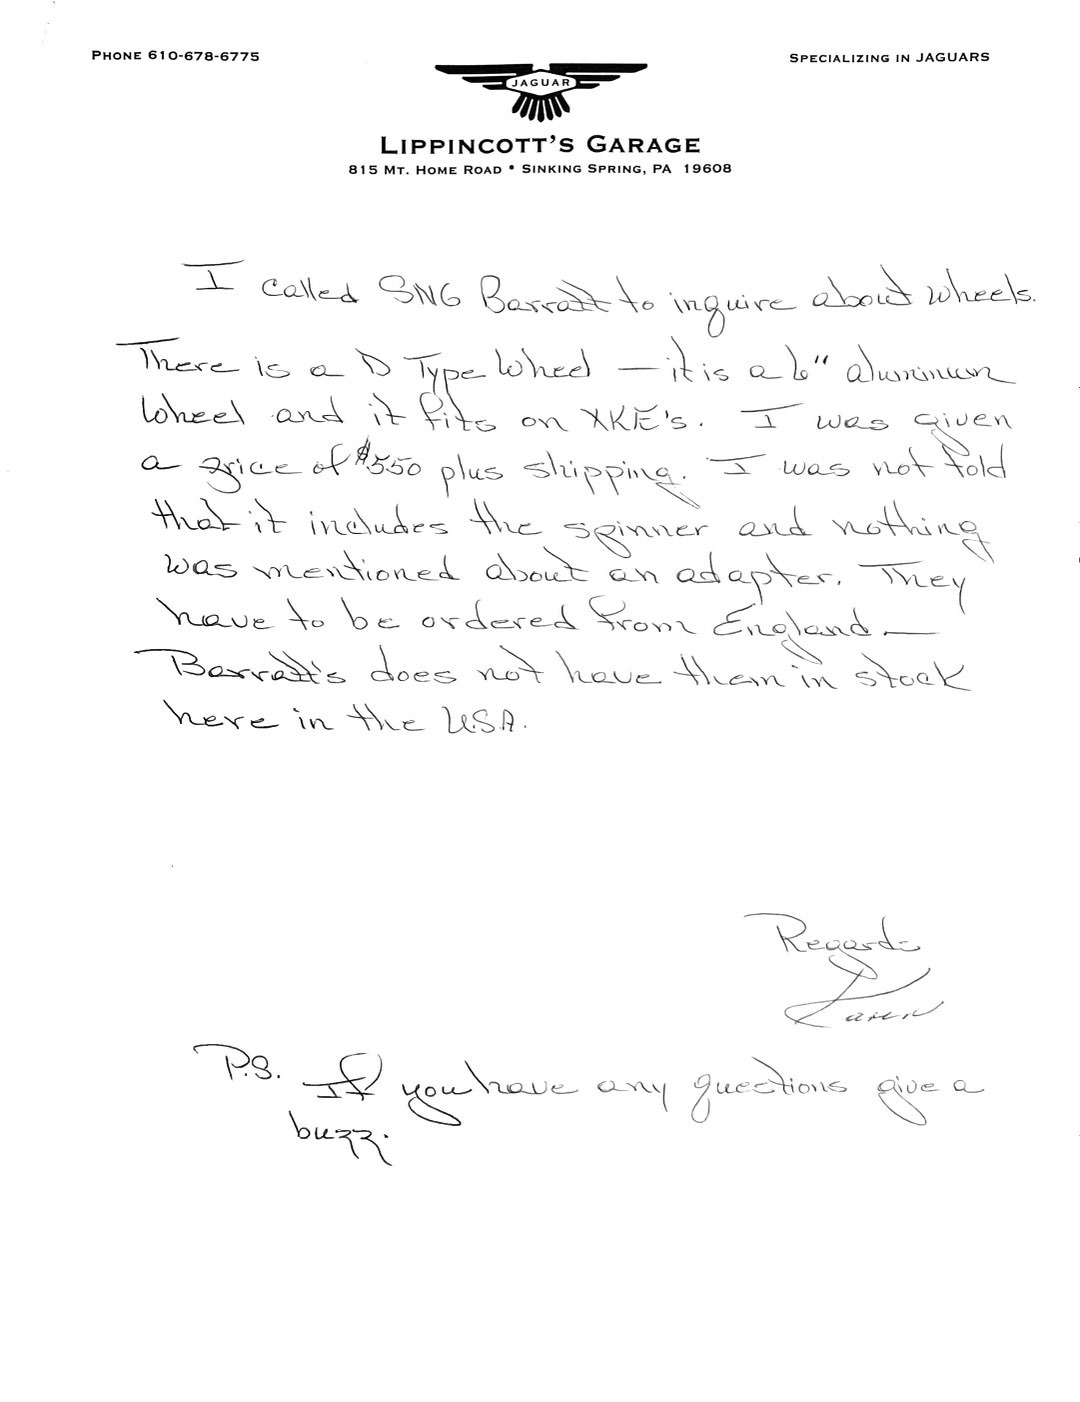 PHONE 610-678-6775
SPECIALIZING IN JAGUARS
JAGUAR
LIPPINCOTT'S GARAGE
815 MT. HOME ROAD • SINKING SPRING, PA 19608
I called SNG Barratt to inquire about wheels.
There is a D Type Wheel — it is a 6" aluminum
Wheel and it fits on XKE's. I was given
a price of $550 plus shipping. I was not told
that it includes the spinner and nothing
was mentioned about an adapter. They
have to be ordered from England —
Barratt's does not have them in stock
here in the U.S.A.
Regards
Karen
P.S. If you have any questions give a
buzz.